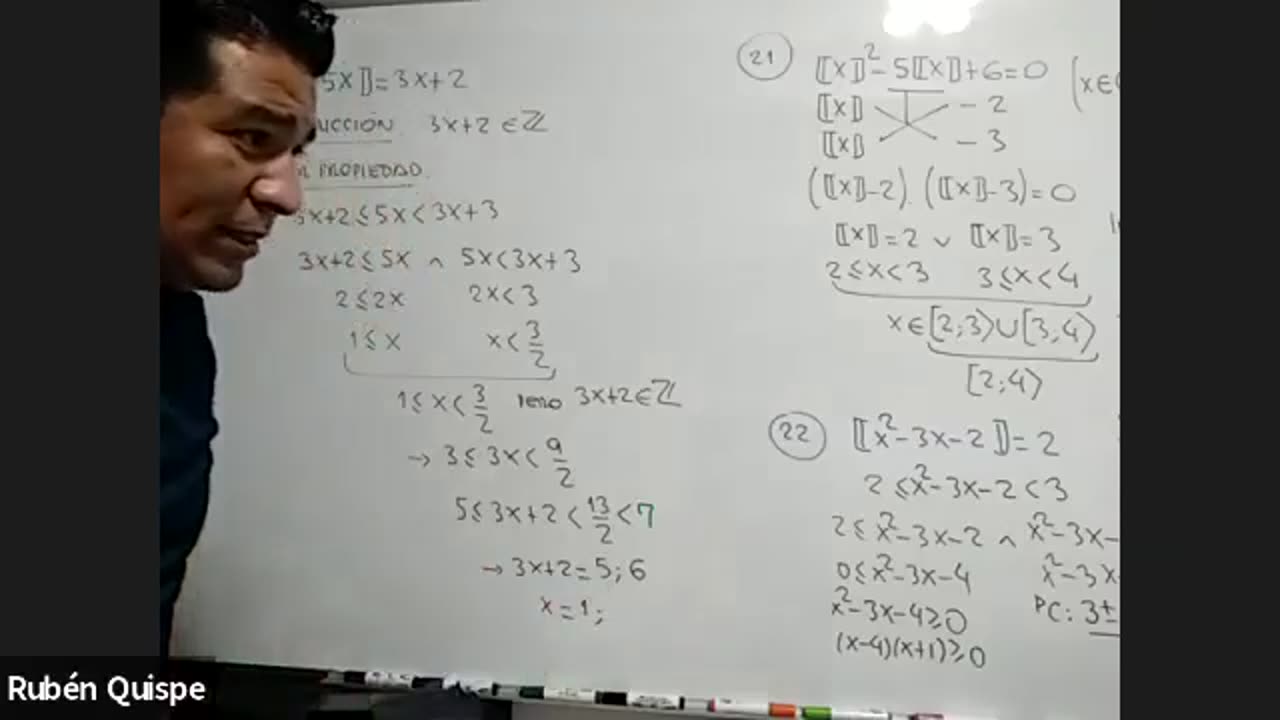 5x⟧=3x+2
UCCIÓN. 3x+2 ∈ ℤ
PROPIEDAD.
3x+2 ≤ 5x < 3x+3
3x+2 ≤ 5x ∧ 5x < 3x+3
2 ≤ 2x 2x < 3
1 ≤ x x < 3/2
1 ≤ x < 3/2 PERO 3x+2 ∈ ℤ
→ 3 ≤ 3x < 9/2
5 ≤ 3x+2 < 13/2 < 7
→ 3x+2 = 5; 6
x = 1;
21 ⟦x⟧² - 5⟦x⟧ + 6 = 0 (x ∈
⟦x⟧ - 2
⟦x⟧ - 3
(⟦x⟧-2).(⟦x⟧-3)=0
⟦x⟧=2 ∨ ⟦x⟧=3
2 ≤ x < 3 3 ≤ x < 4
x ∈ [2;3⟩ ∪ [3,4⟩
[2;4⟩
22 ⟦x²-3x-2⟧=2
2 ≤ x²-3x-2 < 3
2 ≤ x²-3x-2 ∧ x²-3x-
0 ≤ x²-3x-4 x²-3x-
x²-3x-4 ≥ 0 PC: 3±
(x-4)(x+1) ≥ 0
Rubén Quispe